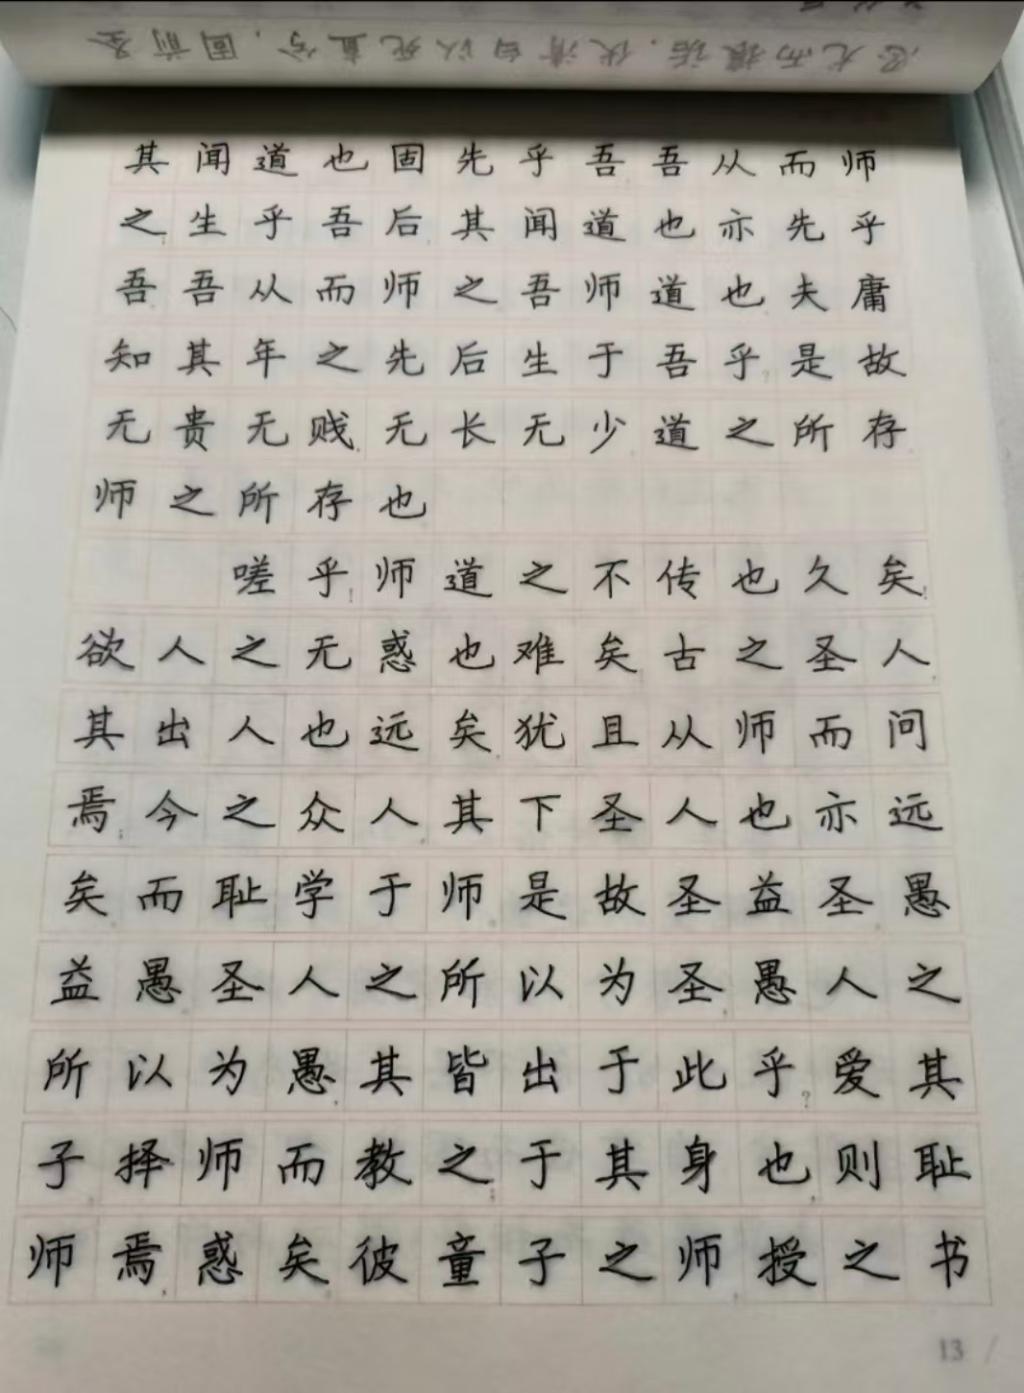 其闻道也固先乎吾吾从而师
之生乎吾后其闻道也亦先乎
吾吾从而师之吾师道也夫庸
知其年之先后生于吾乎?是故
无贵无贱无长无少道之所存
师之所存也
嗟乎!师道之不传也久矣!
欲人之无惑也难矣古之圣人
其出人也远矣犹且从师而问
焉;今之众人其下圣人也亦远
矣而耻学于师是故圣益圣愚
益愚圣人之所以为圣愚人之
所以为愚其皆出于此乎?爱其
子择师而教之;于其身也,则耻
师焉惑矣彼童子之师授之书
13